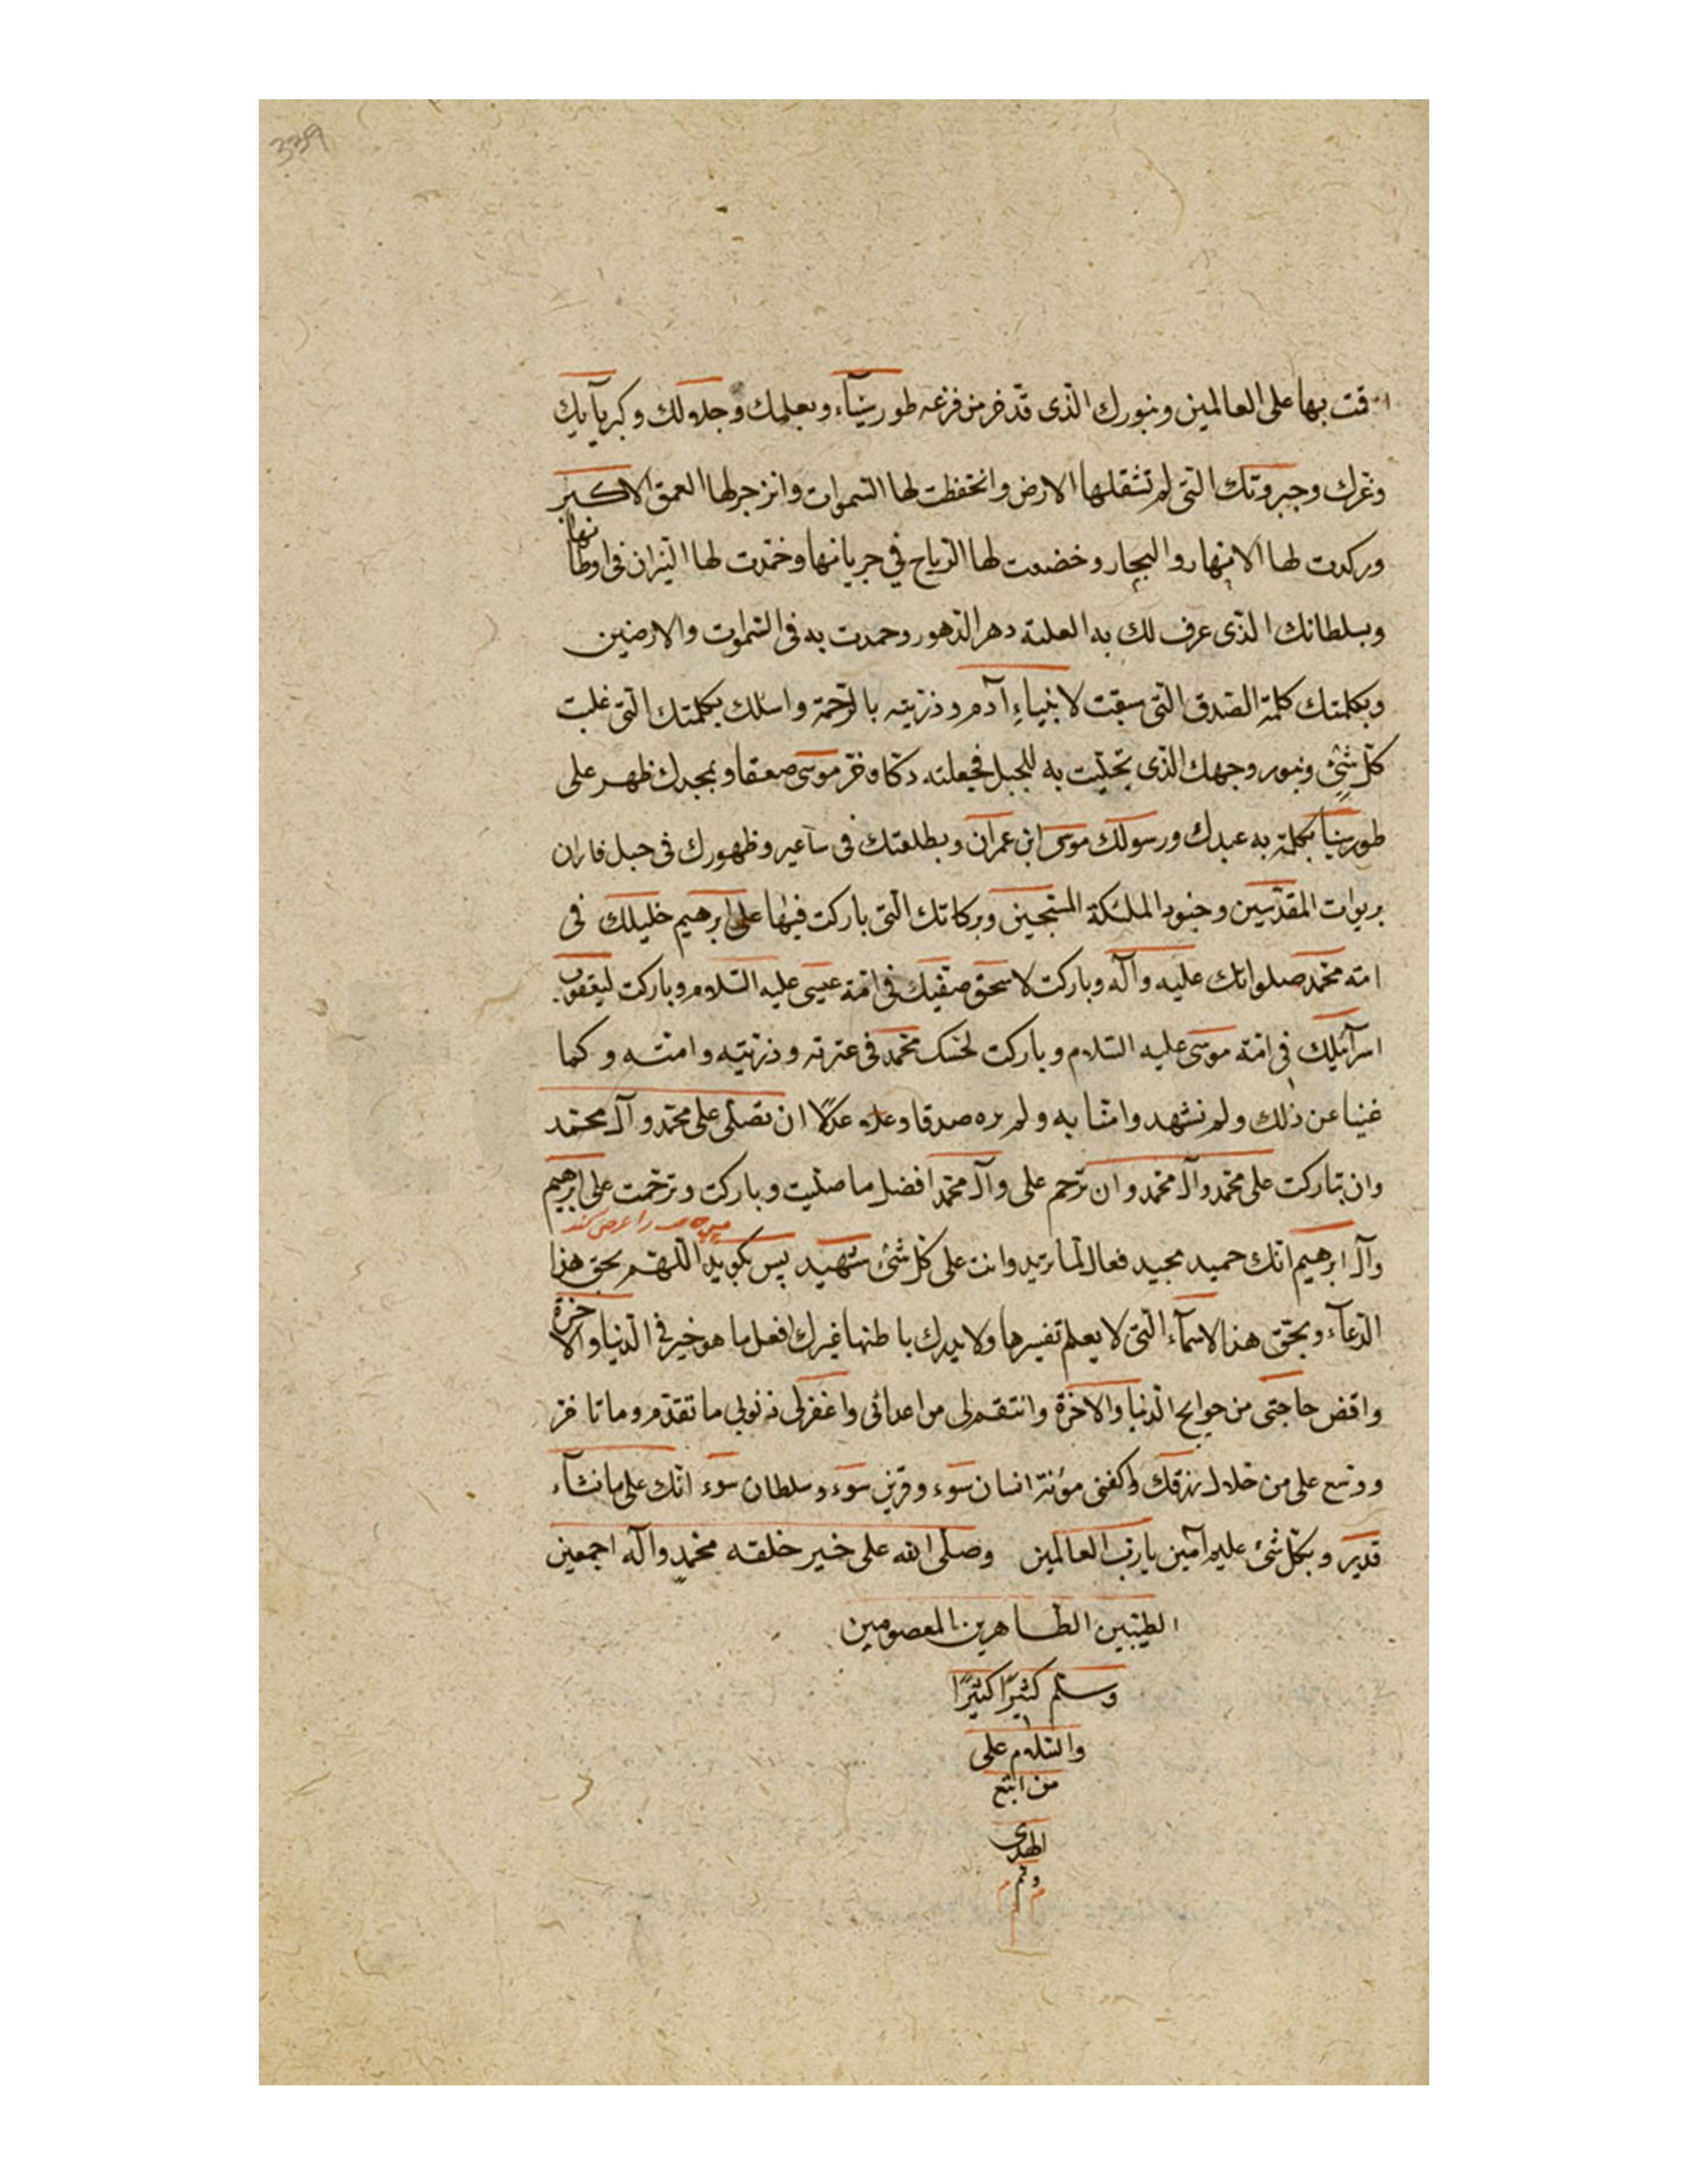 339
قت بها على العالمين وبنورك الذى قد خر من فزعه طور سيناء وبعلمك وجلالك وكبريآيك
وعزك وجبروتك التى لم تثقلها الارض وانخفظت لها السموات وانزجر لها العمق الاكبر
وركدت لها الانهار والبحار وخضعت لها الرياح في جريانها وخمدت لها النيران فى اوطانها
وبسلطانك الذى عرف لك به الغلبة دهر الدهور وحمدت به فى السموات والارضين
وبكلمتك كلمة الصدق التى سبقت لانبياء آدم وذريته بالرحمة واسئلك بكلمتك التى غلبت
كل شئ وبنور وجهك الذى تجليت به للجبل فجعلته دكا وخر موسى صعقا وبمجدك ظهر على
طور سينا بكلمة به عبدك ورسولك موسى ابن عمران وبطلعتك فى ساعير وظهورك فى جبل فاران
بربوات المقدسين وجنود الملئكة المسبحين وبركاتك التى باركت فيها على ابرهيم خليلك فى
امة محمد صلواتك عليه وآله وباركت لاسحق صفيك فى امة عيسى عليه السلام وباركت ليعقوب
اسرآئيلك فى امة موسى عليه السلام وباركت محمد فى عترته وذريته وامته وكما
غبنا عن ذلك ولم نشهد وامنا به ولم نره صدقا وعدلا ان تصلى على محمد وآل محمد
وان تبارك على محمد وآل محمد وان ترحم على وآل محمد افضل ما صليت وباركت وترحمت على ابرهيم
را عرض كند
وآل ابرهيم انك حميد مجيد فعال لما تريد وانت على كل شئ شهيد پس بكويد اللهم بحق هذا
الدعآء وبحق هذا الاسمآء التى لا يعلم تفسيرها ولا يدرك باطنها غيرك افعل ما هو خير فى الدنيا والاخرة
واقض حاجتى من حوايج الدنيا والاخرة وانتقم لى من اعدائى واغفر لى ذنوبى ما تقدم وما تاخر
ووسع على من حلال رزقك واكفنى مؤنة انسان سوء وقرين سوء وسلطان سوء انك على ما تشآء
قدير وبكل شئ عليم آمين يا رب العالمين وصلى الله على خير خلقه محمد وآله اجمعين
الطيبين الطاهرين المعصومين
وسلم كثيرا كثيرا
والسلام على
من اتبع
الهدى
وتم